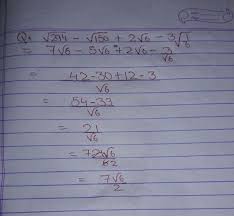 Q. √294 - √150 + 2√6 - 3√1/6
= 7√6 - 5√6 + 2√6 - 3/√6
= 42-30+12-3/√6
= 54-33/√6
= 21/√6
= 7√6/2